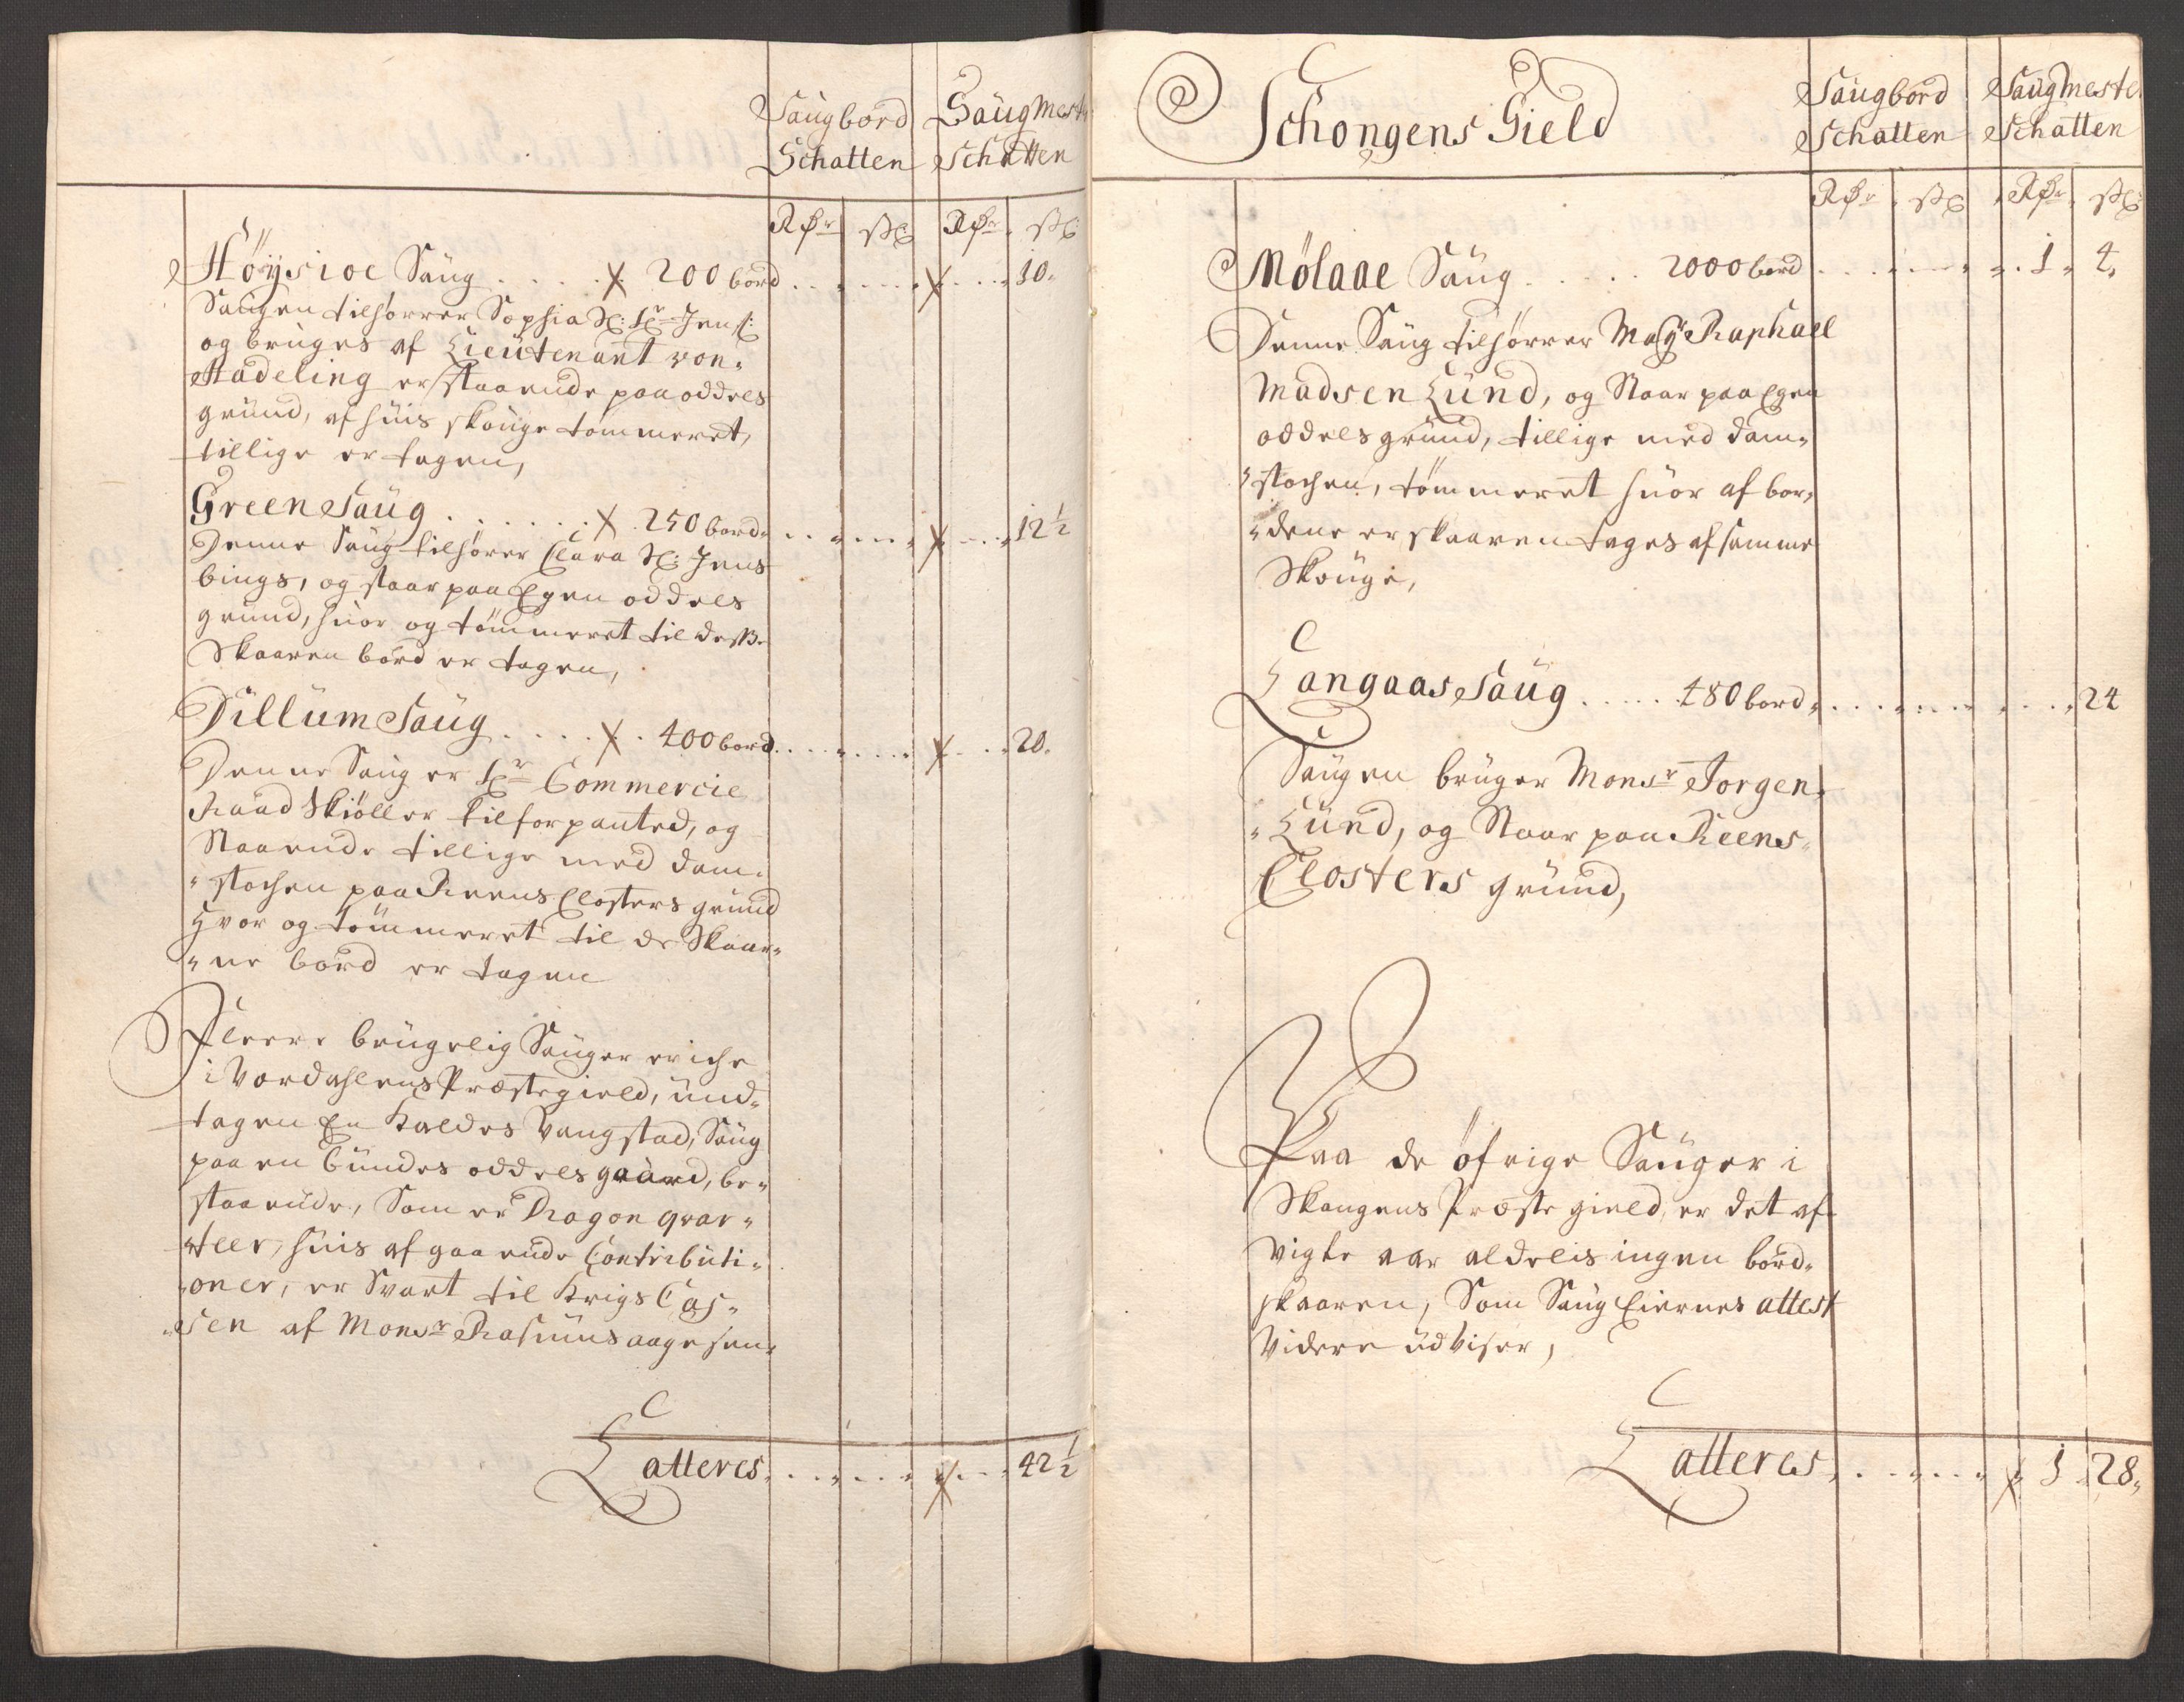 Saugbord Saugmest
Schatten Schatten
Rdr ß Rdr ß
Höysioe Saug . . . . . 200 bord . . . . . . . 10.
Saugen tilhörrer Sophia Sl: Hr Jens:
og bruges af Lieutenant von
Hadeling er staaende paa oddels
grund, af huis skouge tommeret,
tillige er tagen,
Green Saug . . . . . . 250 bord . . . . . . . 12 1/2
Denne Saug tilhörer Clara Sl: Jens
bings, og staar paa Egen oddels
grund, huor og tömmeret til dess
Skaaren bord er tagen,
Dillum Saug . . . . . 400 bord . . . . . . . 20.
Denne Saug er Hr Commercie
Raad Skiöller tilforpanted, og
Staaende tillige med dam-
stochen paa Reens Closters grund
hvor og tömmeret til de Skaar-
ne bord er tagen
Fleere brugelig Sauger er iche
i Værdahlens Præstegield, und-
tagen En Kaldes Vangstad, Saug
paa en bundes oddels gaard, be-
staaende, Som er Dragon qvar-
teer, huis af gaaende Contributi-
oner, er Svart til Krigs Cas-
sen af Monsr Rasmus aagesen.
Latteres . . . . . . . 42 1/2
Schongens Gield
Saugbord Saugmeste
Schatten Schatten
Rdr ß Rdr ß
Mölaae Saug . . . . 2000 bord . . . . . . . 1 . 4.
Denne Saug tilhörrer May Raphael
Madsen Lund, og Staar paa Egen
oddels grund, tillige med dam-
stochen, tömmeret huor af bor-
dene er skaaren tages af samme
Skouge,
Langaas Saug . . . . . 480 bord . . . . . . . 24
Saugen bruger Monsr Jorgen
Lund, og Staar paa Reens
Closters grund,
Paa de öfrige Sauger i
Skougens Præste gield, er det af-
vigte aar aldelis ingen bord
skaaren, Som Saug Eiernes attest
Videre udviser,
Latteres . . . . . . . 1 . 28.